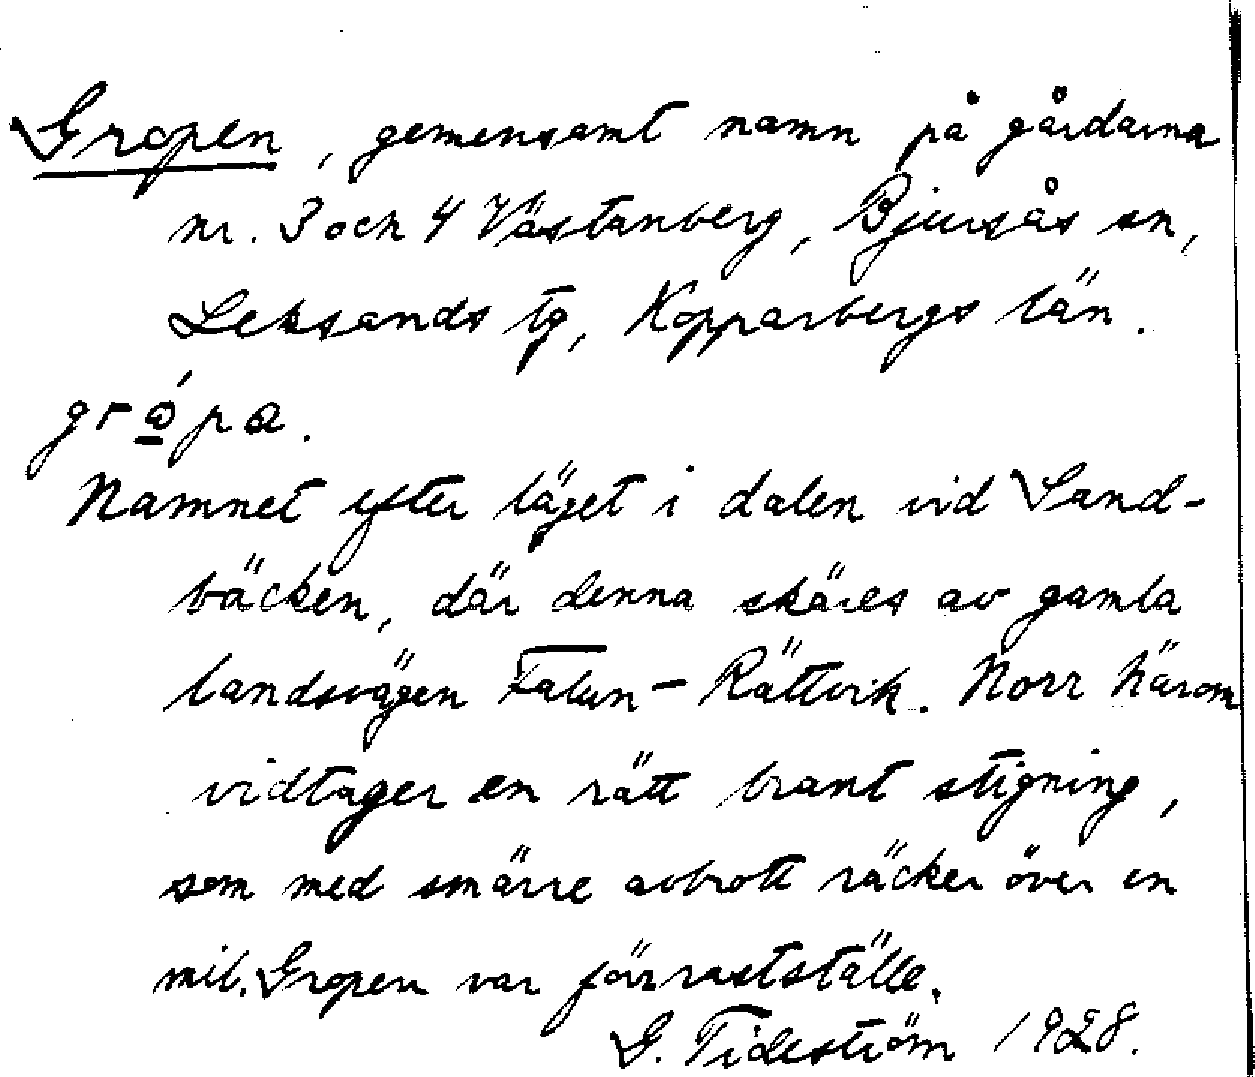 Gropen, gemensamt namn på gårdarna
nr. 3 och 4 Västanberg, Bjursås sn,
Leksands tg, Kopparbergs län.
grǫ́pa.
Namnet efter läget i dalen vid Sand-
bäcken, där denna skäres av gamla
landsvägen Falun - Rättvik. Norr härom
vidtager en rätt brant stigning,
som med smärre avbrott räcker över en
mil. Gropen var förr rastställe.
G. Tideström 1928.